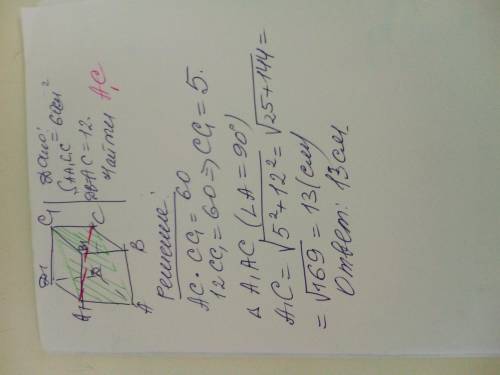 Дано:
S AA₁C₁C = 60см²
AC = 12.
Найти A₁C
D₁ C₁
A₁
D C
A B
Решение:
AC · CC₁ = 60
12 CC₁ = 60 => CC₁ = 5.
Δ A₁AC (∠A = 90°)
A₁C = √5² + 12² = √25 + 144 =
= √169 = 13 (см)
Ответ: 13 см